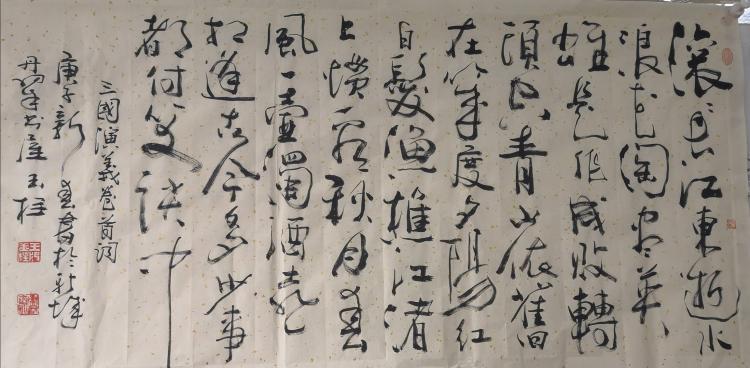 滚滚长江東逝水
浪花淘尽英
雄是非成敗轉
頭空青山依舊
在幾度夕陽红
白髮漁樵江渚
上慣看秋月春
風一壺濁酒喜
相逢古今多少事
都付笑談中
三國演義卷首词
庚子新春書於新城
丹书屋玉柱